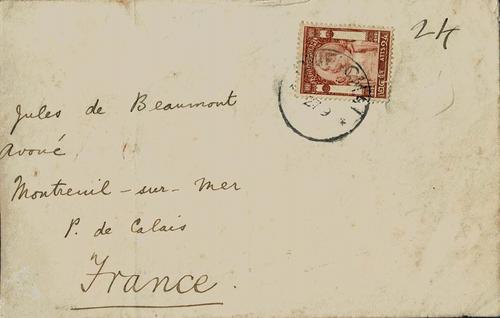 24
Jules de Beaumont
Avoué
Montreuil - sur - Mer
P. de Calais
France.